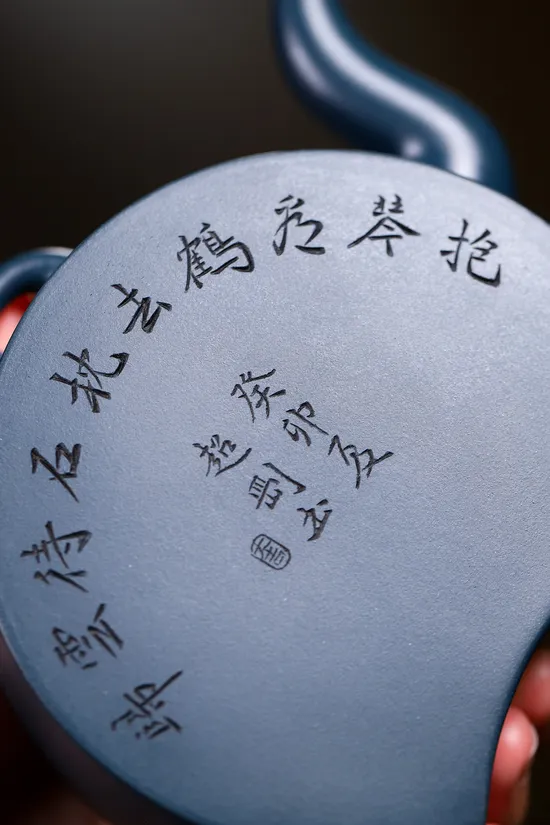 抱琴看鶴去枕石待雲歸
癸卯夏
超剛书